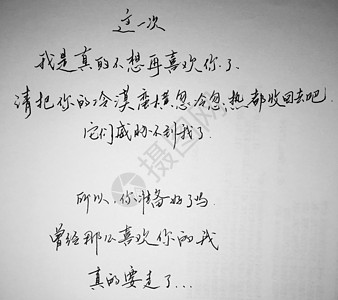 这一次
我是真的不想再喜欢你了、
请把你的冷漠蛮横忽冷忽热都收回去吧.
它们威胁不到我了.
所以.你准备好了吗
曾经那么喜欢你的我
真的要走了...